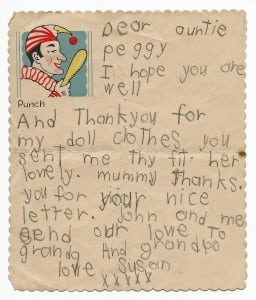 Dear auntie
peggy
I hope you are
well
Punch
And Thankyou for
my doll clothes you
sent me thy fit her
lovely. mummy thanks
you for your nice
letter. John and me
send our love to
grandg And grandpo
love Susan
xxxxx